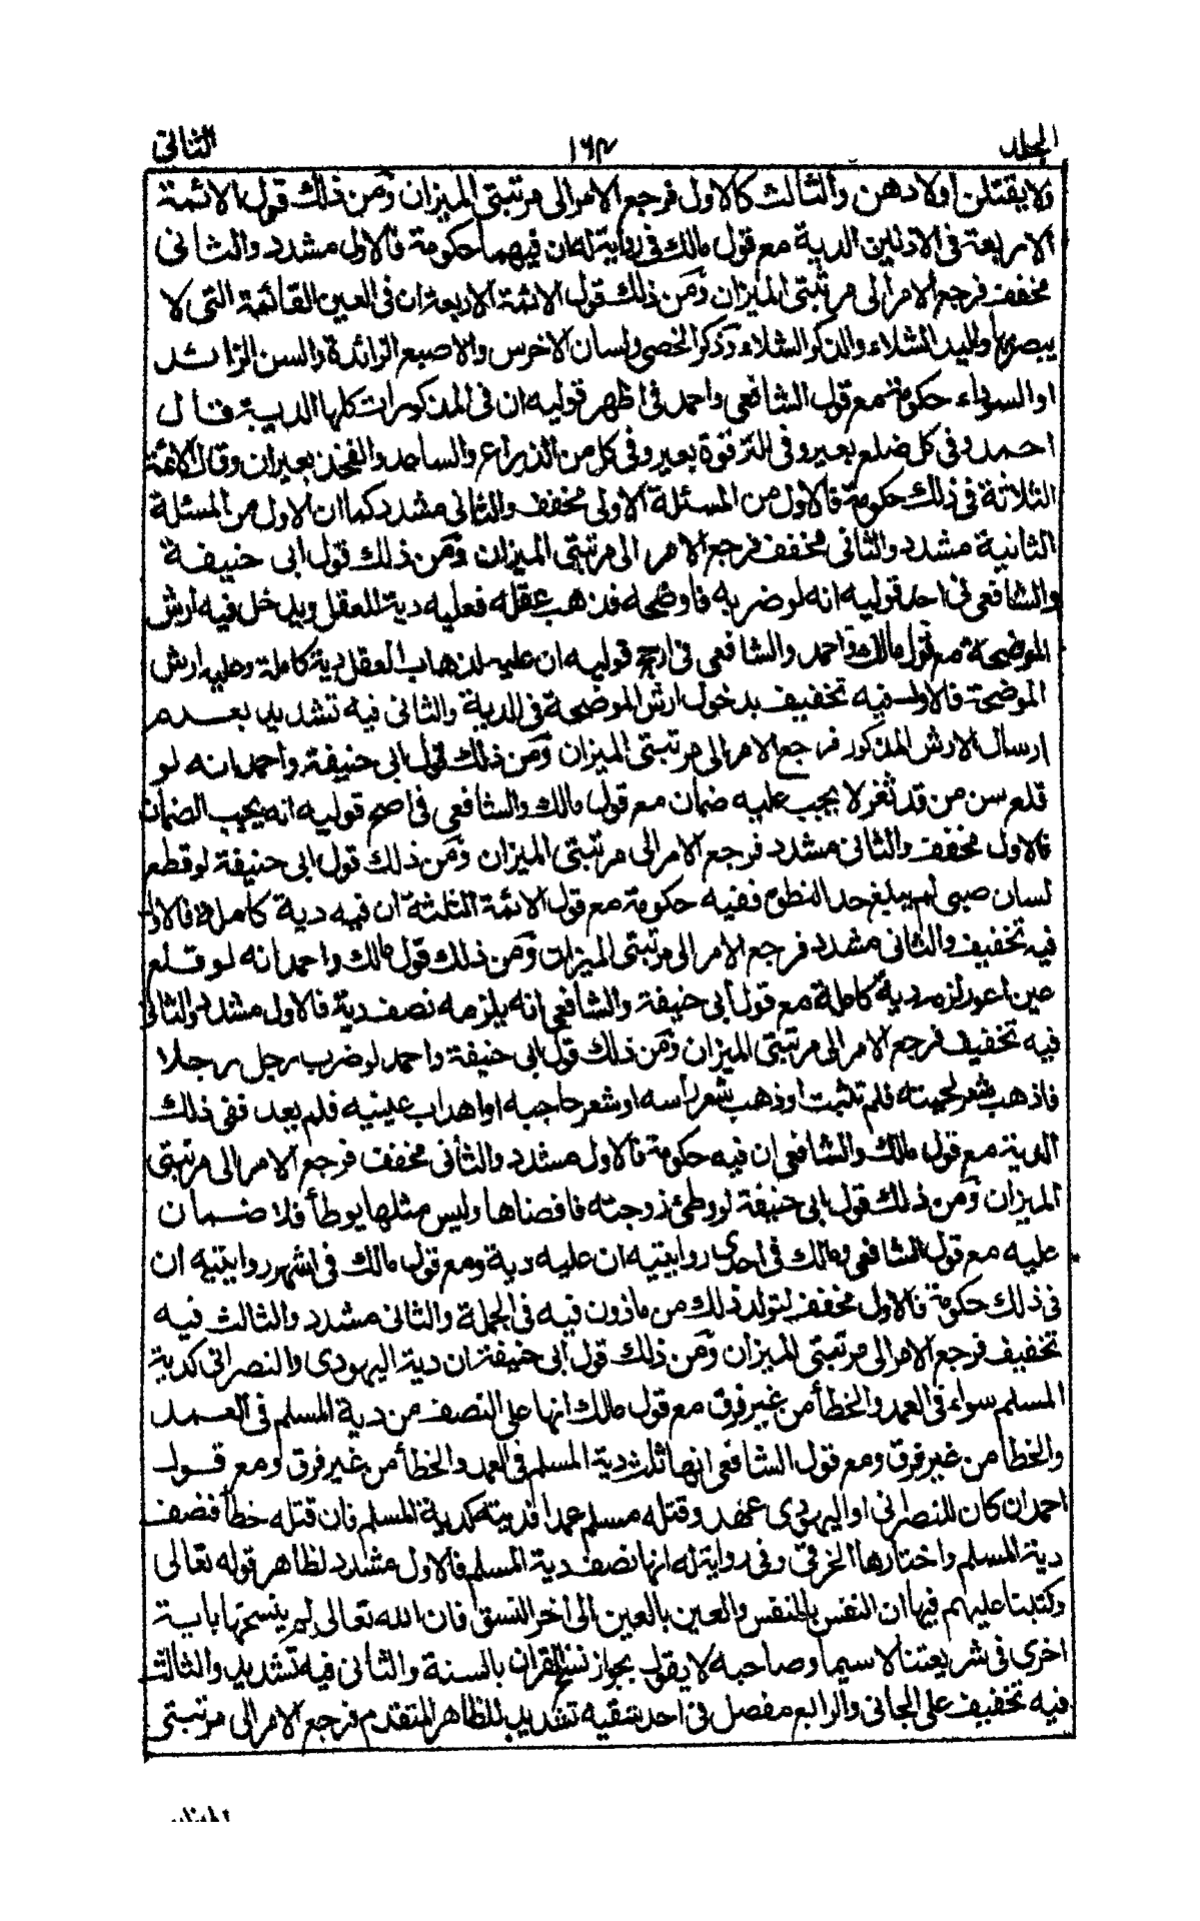 المجلد ١٦٢ الثاني
ولا يقتلن اولادهن والثالث كالاول فرجع الامر الى مرتبتي الميزان ومن ذلك قول الائمة
الاربعة في الاذنين الدية مع قول مالك في رواية له ان فيهما حكومة فالاول مشدد والثاني
مخفف فرجع الامر الى مرتبتي الميزان ومن ذلك قول الائمة الاربعة ان في العين القائمة التي لا
يبصر بها واليد الشلاء والذكر الشلاء وذكر الخصي ولسان الاخرس والاصبع الزائدة والسن الزائد
او السوداء حكومة مع قول الشافعي واحمد في اظهر قوليه ان في المذكورات كلها الدية قال
احمد وفي كل ضلع بعير وفي الترقوة بعير وفي كل من الذراع والساعد والفخذ بعيران وقال الائمة
الثلاثة في ذلك حكومة فالاول من المسئلة الاولى مخفف والثاني مشدد كما ان الاول من المسئلة
الثانية مشدد والثاني مخفف فرجع الامر الى مرتبتي الميزان ومن ذلك قول ابي حنيفة
والشافعي في احد قوليه انه لو ضربه فاوضحه فذهب عقله فعليه دية للعقل ويدخل فيه ارش
الموضحة مع قول مالك واحمد والشافعي في ارجح قوليه ان عليه لذهاب العقل دية كاملة وعليه ارش
الموضحة فالاول فيه تخفيف بدخول ارش الموضحة في الدية والثاني فيه تشديد بعدم
ارسال الارش المذكور فرجع الامر الى مرتبتي الميزان ومن ذلك قول ابي حنيفة واحمد انه لو
قلع سن من قد ثغر لا يجب عليه ضمان مع قول مالك والشافعي في اصح قوليه انه يجب الضمان
فالاول مخفف والثاني مشدد فرجع الامر الى مرتبتي الميزان ومن ذلك قول ابي حنيفة لو قطع
لسان صبي لم يبلغ حد النطق ففيه حكومة مع قول الائمة الثلثة ان فيه دية كاملة فالاول
فيه تخفيف والثاني مشدد فرجع الامر الى مرتبتي الميزان ومن ذلك قول مالك واحمد انه لو قلع
عين اعور لزمه دية كاملة مع قول ابي حنيفة والشافعي انه يلزمه نصف دية فالاول مشدد والثاني
فيه تخفيف فرجع الامر الى مرتبتي الميزان ومن ذلك قول ابي حنيفة واحمد لو ضرب رجل رجلا
فاذهب شعر لحيته فلم تثبت او ذهب شعر راسه او شعر حاجبه او اهداب عينيه فلم يعد ففي ذلك
الدية مع قول مالك والشافعي ان فيه حكومة فالاول مشدد والثاني مخفف فرجع الامر الى مرتبتي
الميزان ومن ذلك قول ابي حنيفة لو وطئ زوجته فافضاها وليس مثلها يوطأ فلا ضمان
عليه مع قول الشافعي ومالك في احدى روايتيه ان عليه دية ومع قول مالك في اشهر روايتيه ان
في ذلك حكومة فالاول مخفف لتولد ذلك من ماذون فيه في الجملة والثاني مشدد والثالث فيه
تخفيف فرجع الامر الى مرتبتي الميزان ومن ذلك قول ابي حنيفة ان دية اليهودي والنصراني كدية
المسلم سواء في العمد والخطأ من غير فرق مع قول مالك انها على النصف من دية المسلم في العمد
والخطا من غير فرق ومع قول الشافعي انها ثلث دية المسلم في العمد والخطأ من غير فرق ومع قول
احمد ان كان للنصراني او اليهودي عهد وقتله مسلم عمدا فديته كدية المسلم فان قتله خطأ فنصف
دية المسلم واختارها الخرقي وفي رواية له انها نصف دية المسلم فالاول مشدد لظاهر قوله تعالى
وكتبنا عليهم فيها ان النفس بالنفس والعين بالعين الى اخر النسق فان الله تعالى لم ينسخها باية
اخرى في شريعتنا لا سيما وصاحبه لا يقول بجواز نسخ القران بالسنة والثاني فيه تشديد والثالث
فيه تخفيف على الجاني والرابع مفصل في احد شقيه تشديد للظاهر المتقدم فرجع الامر الى مرتبتي